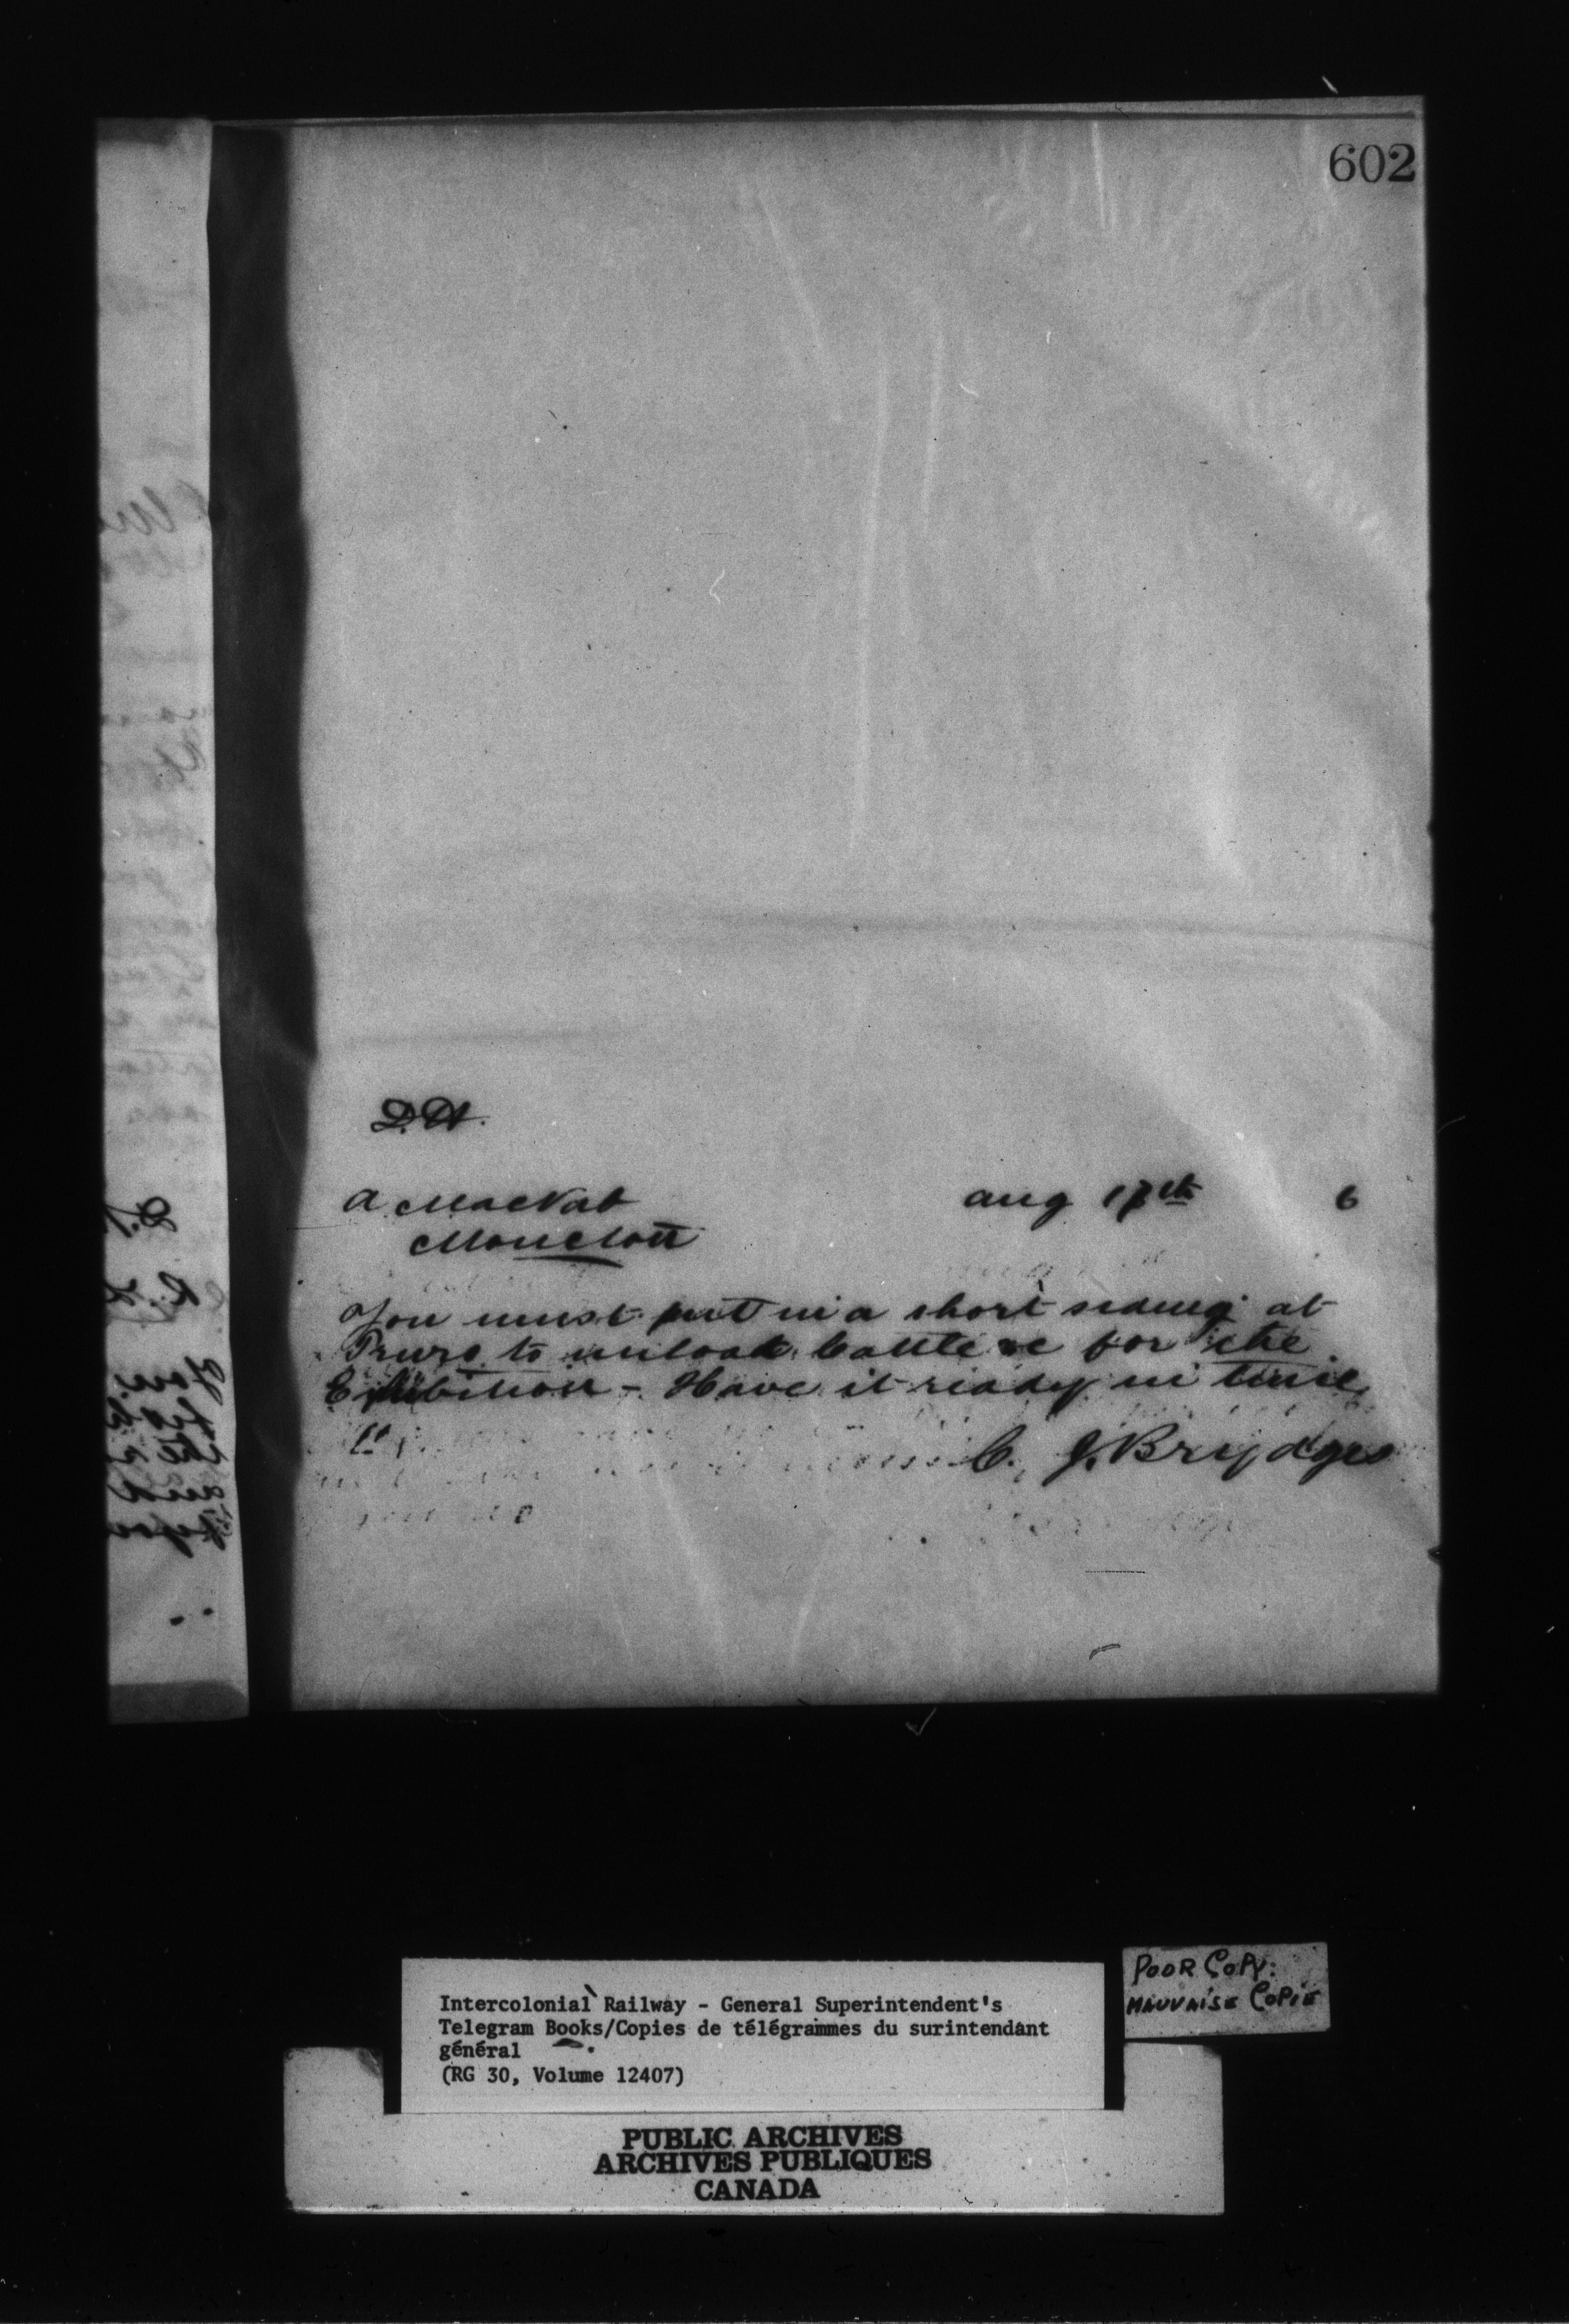 602
D.H.
A MacNab
Moncton
Aug 17th 6
You must put in a short siding at
Truro to unload Cattle &c for the
Exhibition - Have it ready in time
C. J. Brydges
Intercolonial Railway - General Superintendent's
Telegram Books/Copies de télégrammes du surintendant
général
(RG 30, Volume 12407)
POOR COPY:
MAUVAISE COPIE
PUBLIC ARCHIVES
ARCHIVES PUBLIQUES
CANADA